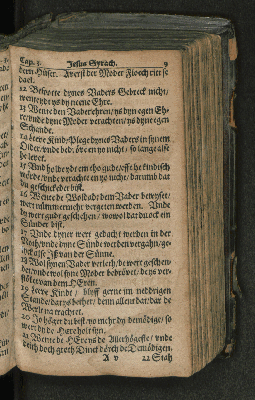 Cap. 3. Jesus Syrach. 9
dern Hüser. Auerst der Moder Floock ritt se
dael.
12 Bespotte dynes Vaders Gebreck nicht,
wente ydt ys dy neene Ehre.
13 Wente den Vader ehren, ys dyn egen Eh-
re, vnde dyne Moder verachten, ys dyne egen
Schande.
14 Leve Kindt, Plege dynes Vaders in synem
Older, vnde bedröve en yo nicht, so lange alse
he levet.
15 Vnd holdt ydt em tho gude, efft he kindisch
würde, vnde verachte en yo nicht, darumb dat
du geschickeder bist.
16 Wente de Woldadt, dem Vader bewyset,
wert nümmermehr vergeten werden. Vnde
dy wert gudt geschehen, wowol dat du ock ein
Sünder bist.
17 Vnde dyner wert gedacht werden in der
Nodt, vnde dyne Sünde werden vergahn, ge-
lick alse Jß van der Sünne.
18 Wol synen Vader verleth, de wert geschen-
det, vnde wol syne Moder bedrövet, de ys ver-
flöket van dem HEren.
19 Leve Kindt, blyff gerne im neddrigen
Stande, dat ys beter, denn alle dat, dar de
Werlt na trachtet.
20 Jo höger du bist, yo mehr dy demödige, so
wert dy de Here holt syn.
21 Wente de HEre ys de Allerhögeste, vnde
deith doch grote Dinck dörch de Demödigen.
A v 22 Stah